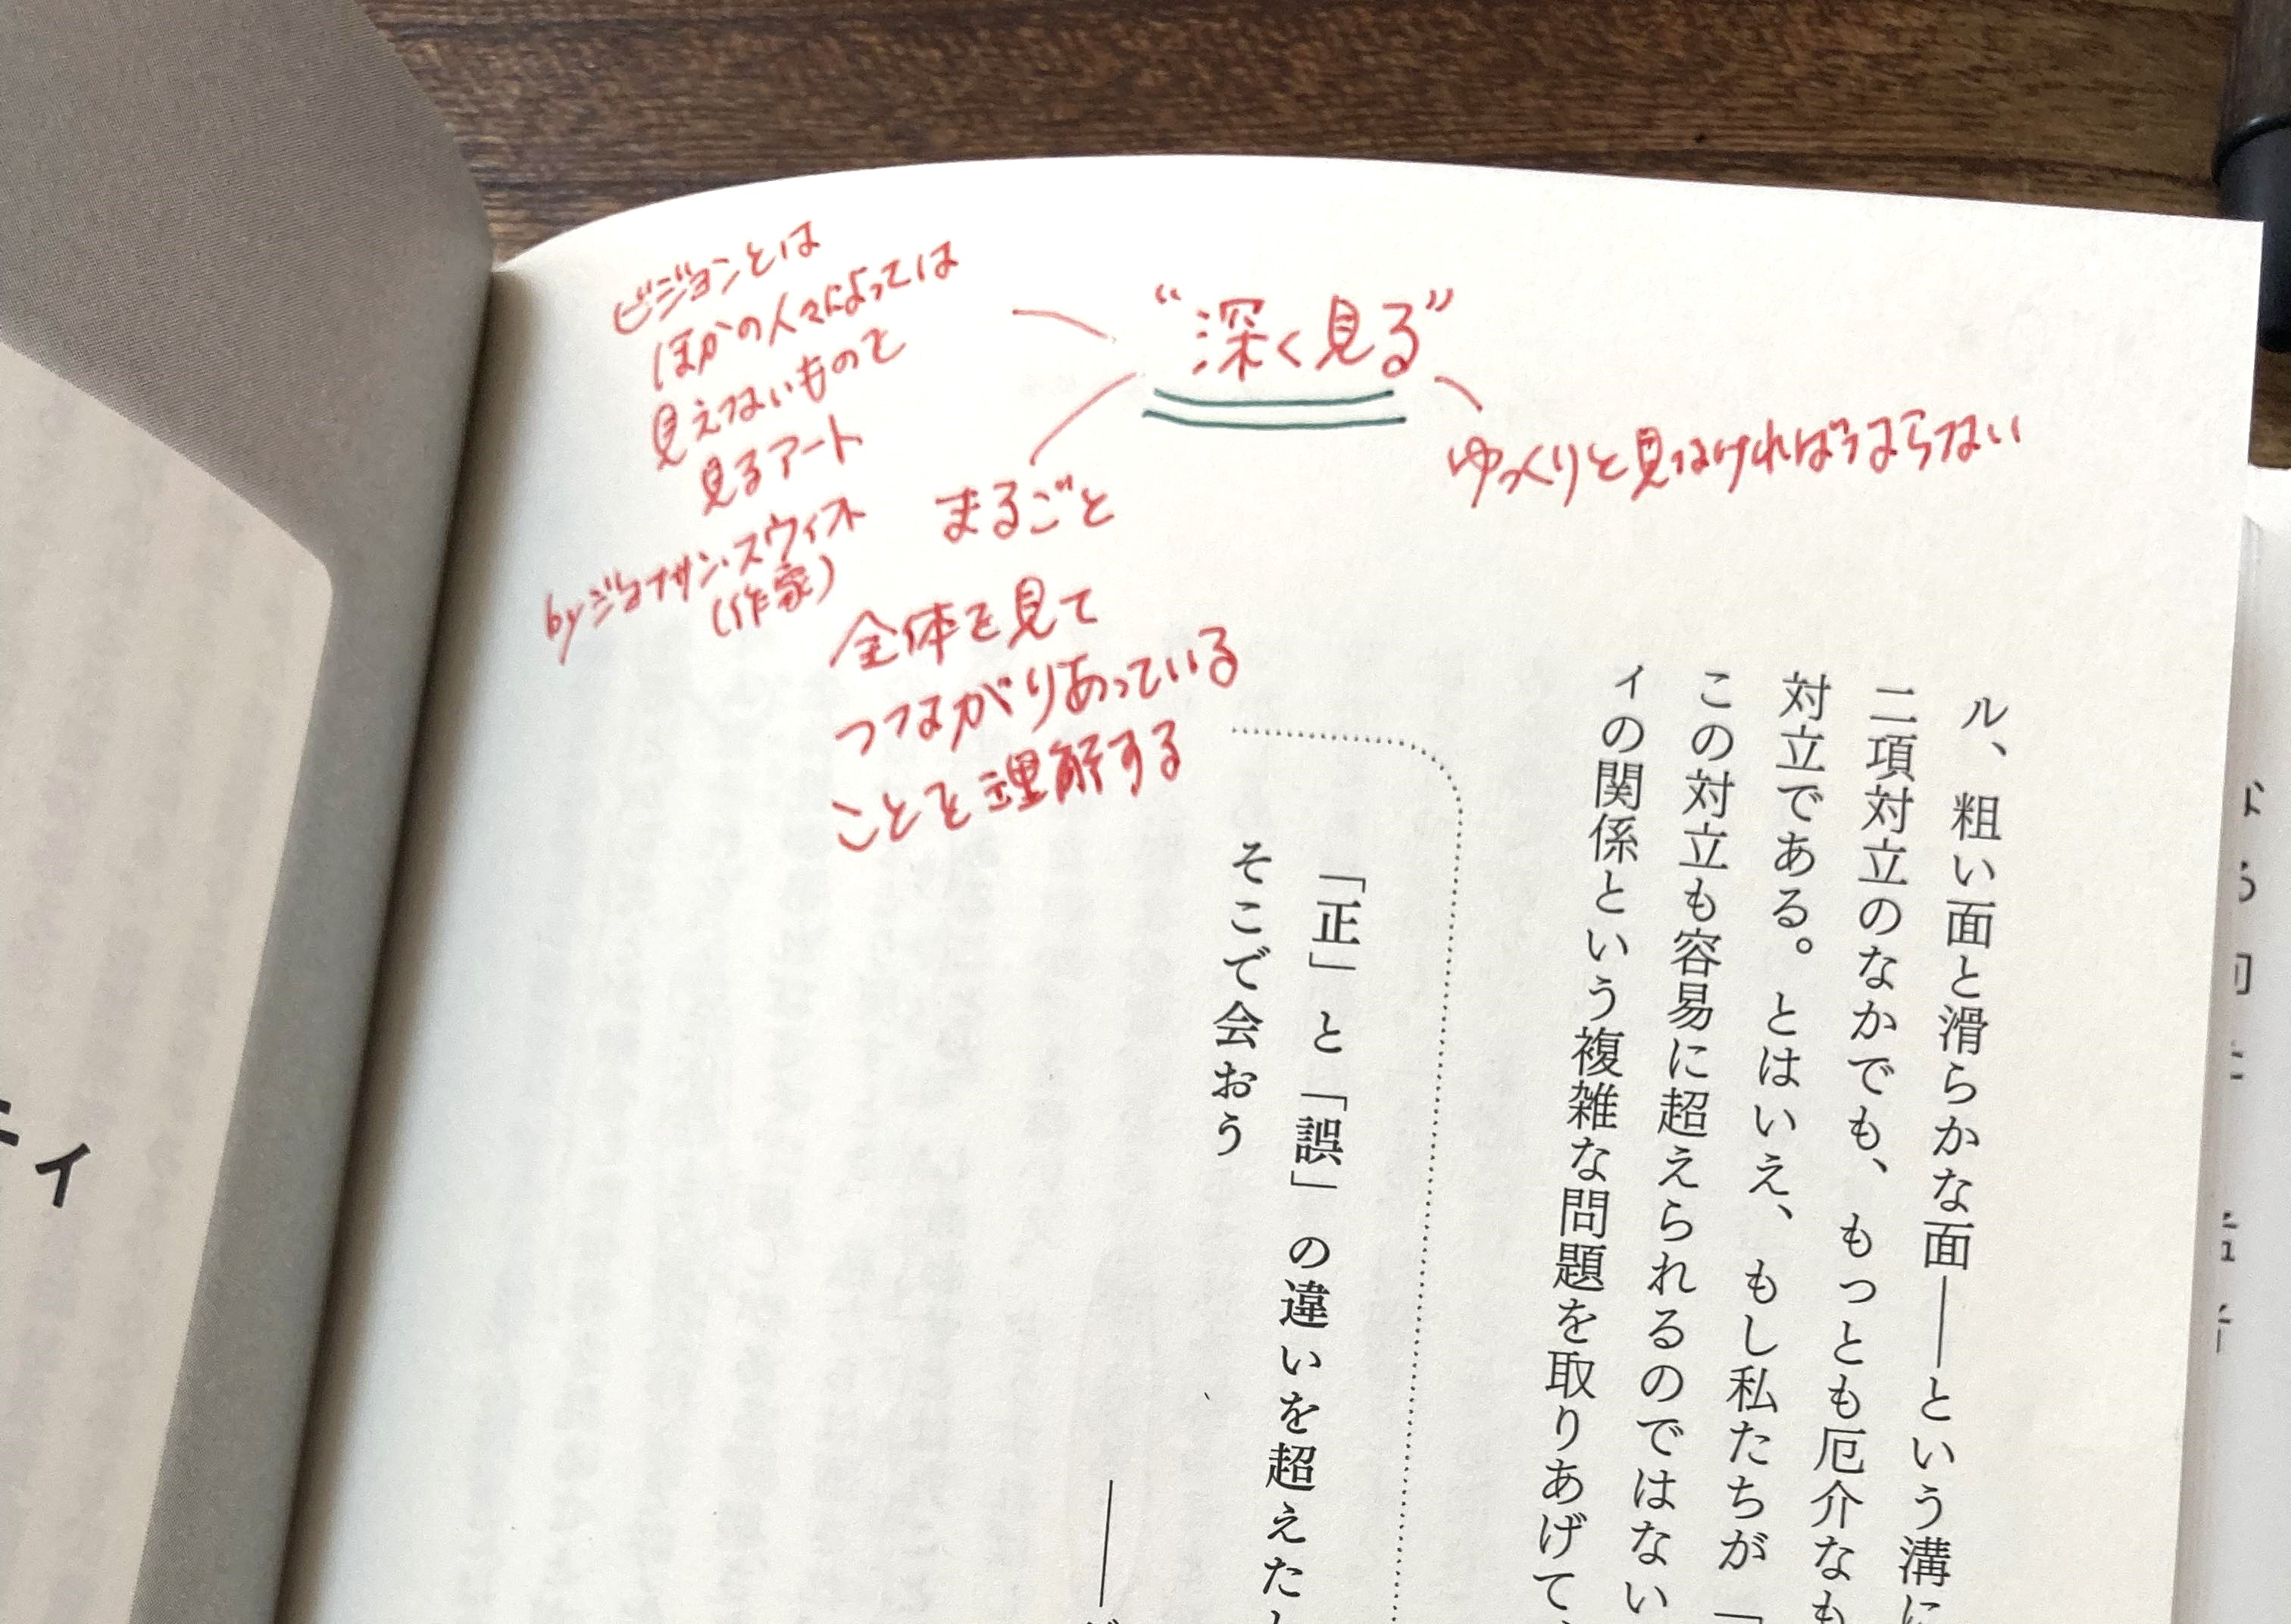 “深く見る”
ゆっくりと見なければならない
ビジョンとは
ほかの人々によっては
見えないものを
見るアート
byジョナサン・スウィフト
(作家)
まるごと
全体を見て
つながりあっている
ことを理解する
ル、粗い面と滑らかな面――という溝に
二項対立のなかでも、もっとも厄介なも
対立である。とはいえ、もし私たちが「
この対立も容易に超えられるのではない
ィの関係という複雑な問題を取りあげて
「正」と「誤」の違いを超えた
そこで会おう
ティ